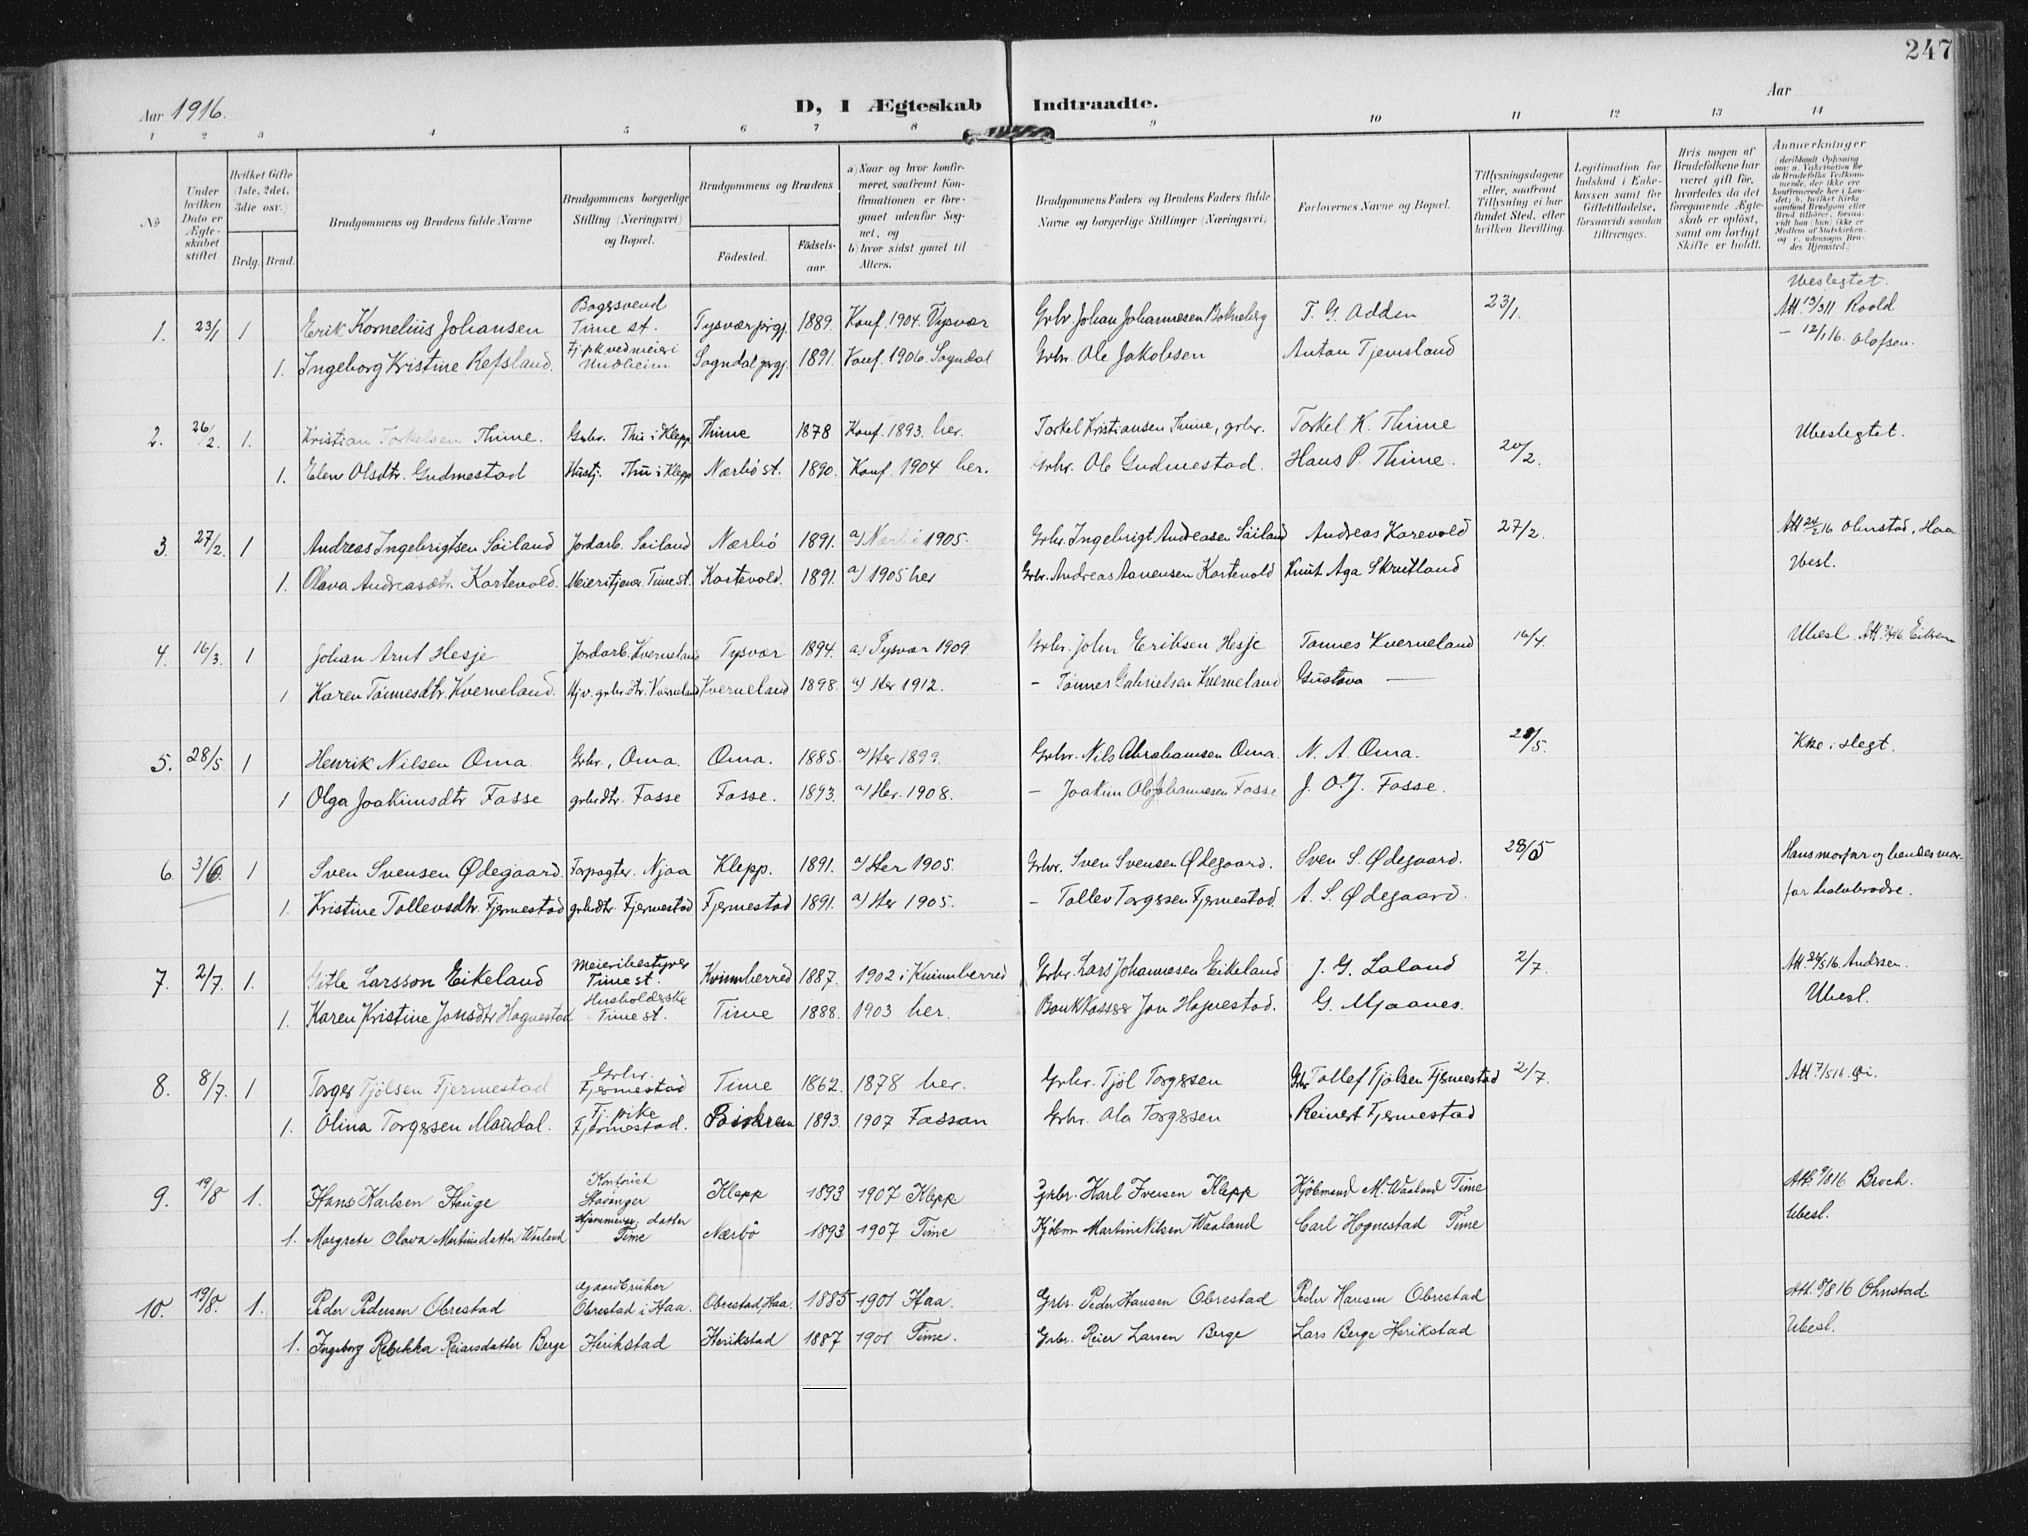 247
Aar 1916.
D, I Ægteskab Indtraadte.
Aar
1 2 3 4 5 6 7 8 9 10 11 12 13 14
№
Under hvilken Dato er Ægteskabet stiftet
Hvilket Gifte (1ste, 2det, 3die osv.)
Brdg. Brud.
Brudgommens og Brudens fulde Navne
Brudgommens borgerlige Stilling (Næringsvei) og Bopæl.
Brudgommens og Brudens
Fødested.
Fødselsaar.
a) Naar og hvor konfirmeret, saafremt Konfirmationen er foregaaet udenfor Sognet, og
b) hvor sidst gaaet til Alters.
Brudgommens Faders og Brudens Faders fulde Navne og borgerlige Stillinger (Næringsvei)
Forlovernes Navne og Bopæl.
Tillysningsdagene eller, saafremt Tillysning ei har fundet Sted, efter hvilken Bevilling.
Legitimation for Indskud i Enkekassen samt for Giftetilladelse, forsaavidt saadan tiltrænges.
Hvis nogen af Brudefolkene har været gift før, hvorledes da det foregaaende Ægteskab er opløst, samt om lovligt Skifte er holdt.
Anmerkninger
Ubeslegtet.
1. 23/1 1 Erik Kornelius Johansen Bagersvend Time st. Tysvær prgj. 1889. Konf. 1904. Tysvær Grbr. Johan Johannesen Bokneberg T. G. Adden 23/1. Att 13/3 11 Roald
1. Ingeborg Kristine Refsland. Undheim Sogndal prgj. 1891. Konf. 1906. Sogndal Grbr. Ole Jakobsen Anton Tjemsland — 12/1 16. Olofsen.
2. 26/2. 1. Kristian Torkelsen Thime. Grbr. Thu i Klepp Thime 1878 Konf. 1893. her. Torkel Kristiansen Thime, grbr. Torkel K. Thime Ubeslegtet.
1. Elen Olsdtr. Gudmestad Hustj. Thu i Klepp Nærbø st. 1890. Konf. 1904 her. Grbr. Ole Gudmestad. Hans P. Thime. 20/2.
3. 27/2. 1 Andreas Ingebrigtsen Söiland Jordarb. Söiland Nærbö 1891. a) Nærbö 1905. Grbr. Ingebrigt Andreasen Söiland Andreas Karevold 27/2. Att 24/2 16 Ohnstad, Haa
1. Olava Andreasdtr. Kartevold. Meieritjener. Time st. Kartevold. 1891. a) 1905 her Grbr. Andreas Aanensen Kartevold Knut Aga Skrutland Ubesl.
4. 16/3. 1 Johan Arnt Hesje Jordarb. Kverneland Tysvær 1894. a) Tysvær 1909. Grbr. John Eriksen Hesje Tønnes Kverneland 16/4. Ubesl.
1 Karen Tönnesdtr. Kverneland. Hjv. grbrdtr. Kverneland Kverneland 1898. a) Her 1912. — Tönnes Gabrielsen Kverneland Gustava —
5. 28/5 1 Henrik Nilsen Oma. Grbr., Oma. Oma. 1885. a) Her 1899. Grbr. Nils Abrahamsen Oma. N. A. Oma. 28/5. Ikke i slegt.
1 Olga Joakimsdtr Fosse grbrdtr. Fosse Fosse. 1893. a) Her. 1908. — Joakim Ole Johannesen Fosse J. O. J. Fosse.
6. 3/6. 1 Sven Svensen Ødegaard. Forpagter. Njaa Klepp. 1891. a) Her 1905. Grbr. Sven Svensen Ødegaard. Sven S. Ødegaard. 28/5 Hans morfar og hendes mor-
1. Kristine Tollevsdtr. Fjermestad grbrdtr. Fjermestad Fjermestad 1891. a) Her 1905. — Tollev Torgersen Fjermestad. A. S. Ødegaard. far halvbrødre.
7. 2/7. 1. Gitle Larsson Eikeland Meieribestyrer Time st. Kvinnherred 1887. 1902 i Kvinnherred Grbr. Lars Johannesen Eikeland J. G. Laland 2/7. Att. 24/5 16. Andrsen.
1. Karen Kristine Jonsdtr Hognestad Husholderske Time st. Time 1888. 1903 her. Bankkasser Jon Hognestad. G. Mjaanes. Ubesl.
8. 8/7. 1 Torger Tjölsen Fjermestad Grbr. Fjermestad Time 1862. 1878 her. Grbr. Tjöl Torgersen Grbr Tollef Tjölsen Fjermestad 2/7. Att 7/5 16.
1. Olina Torgersen Maudal. Tj. pike Fjermestad. 1893. 1907 Fossan Grbr. Ola Torgersen Reinert Fjermestad
9. 19/8 1. Hans Karlsen Hauge Kontorist Stavanger Klepp 1893 1907 Klepp Grbr. Karl Iversen Klepp Kjöbmand M. Waaland Time Att. 9/8 16 Broch.
1. Margrete Olava Martinsdatter Waaland Hjemmevr. datter Time Nærbö 1893 1907 Time Kjöbm Martin Nilsen Waaland Carl Hognestad Time Ubesl.
10. 19/8. 1. Peder Pedersen Obrestad Gaardbruker Obrestad i Haa. Obrestad, Haa. 1885 1901 Haa. Grbr. Peder Hansen Obrestad Peder Hansen Obrestad Att. 8/8 16 Ohnstad.
1. Ingeborg Rebekka Reiersdatter Berge Herikstad Herikstad 1887 1901 Time. Grbr. Reier Larsen Berge Lars Berge Herikstad Ubesl.